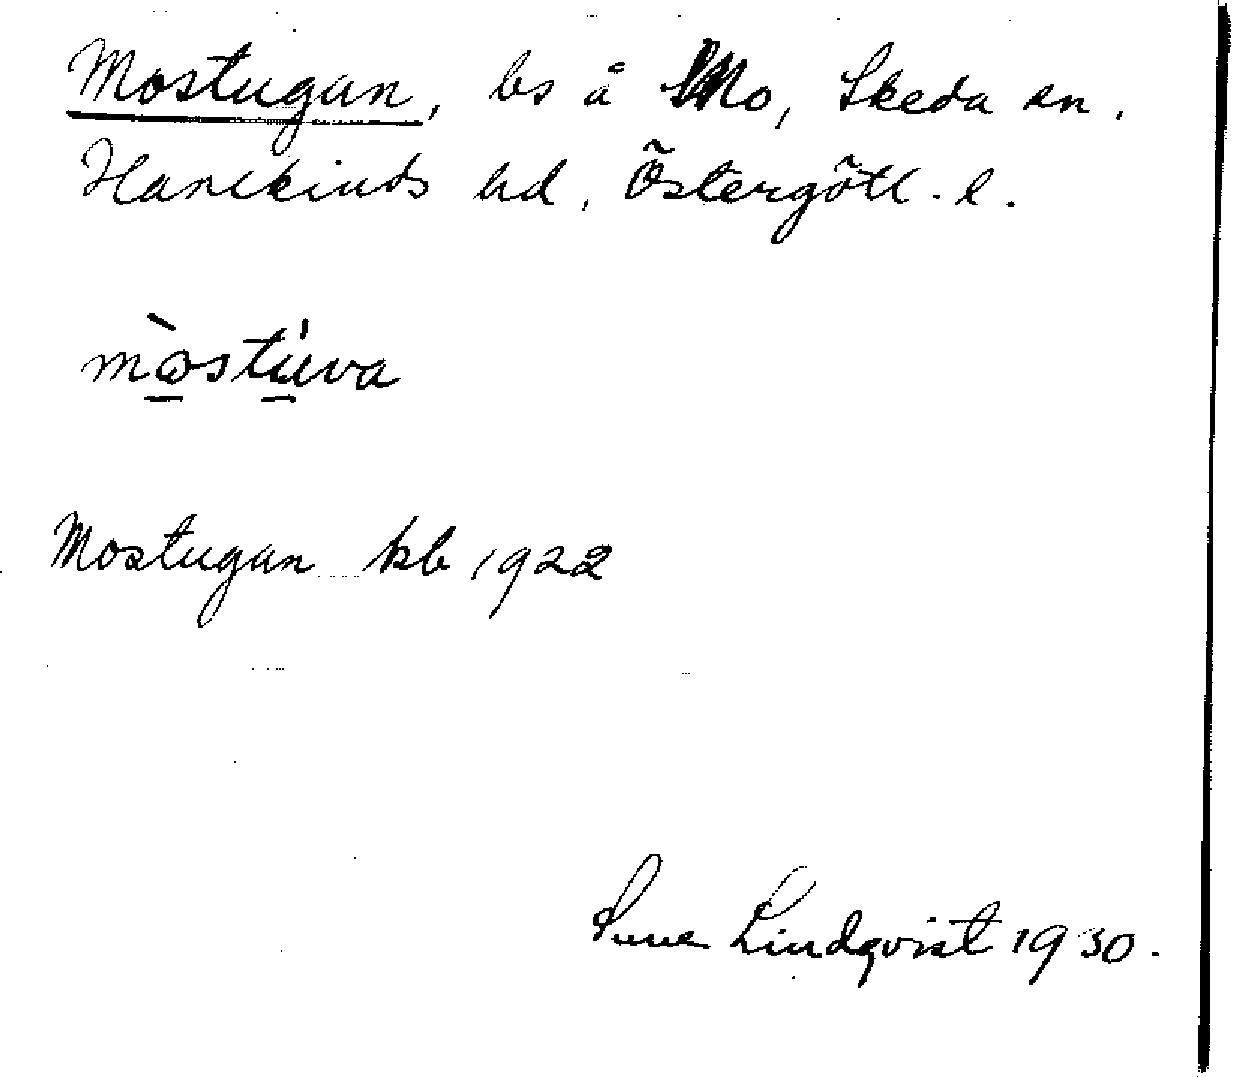 Mostugan, bs å Mo, Skeda sn.
Hanekinds hd, Östergötl. l.
mòstúva
Mostugan kb 1922
Sune Lindqvist 1930.